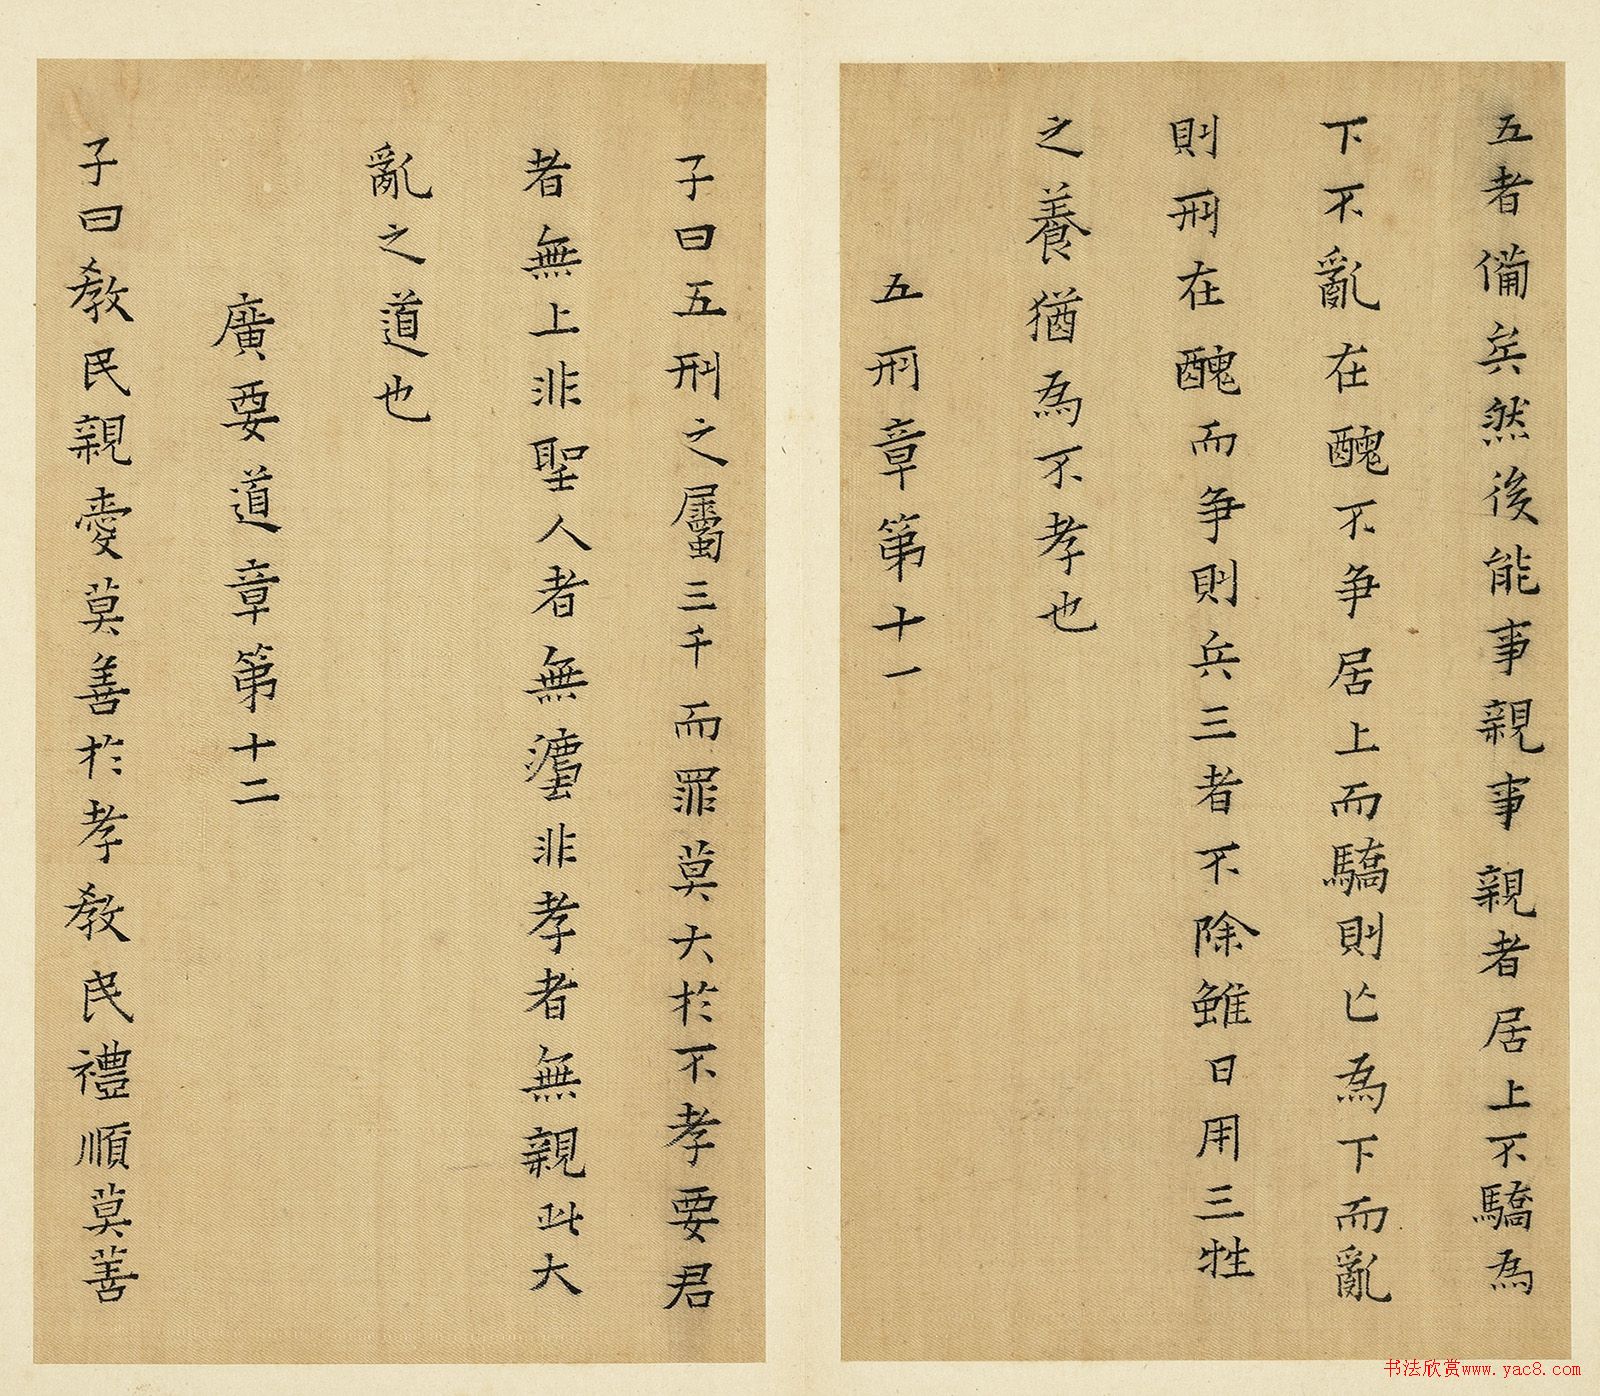 五者備矣然後能事親事親者居上不驕為
下不亂在醜不争居上而驕則亡為下而亂
則刑在醜而争則兵三者不除雖日用三牲
之養猶為不孝也
五刑章第十一
子曰五刑之屬三千而罪莫大於不孝要君
者無上非聖人者無灋非孝者無親此大
亂之道也
廣要道章第十二
子曰教民親愛莫善於孝教民禮順莫善
书法欣赏www.yac8.com